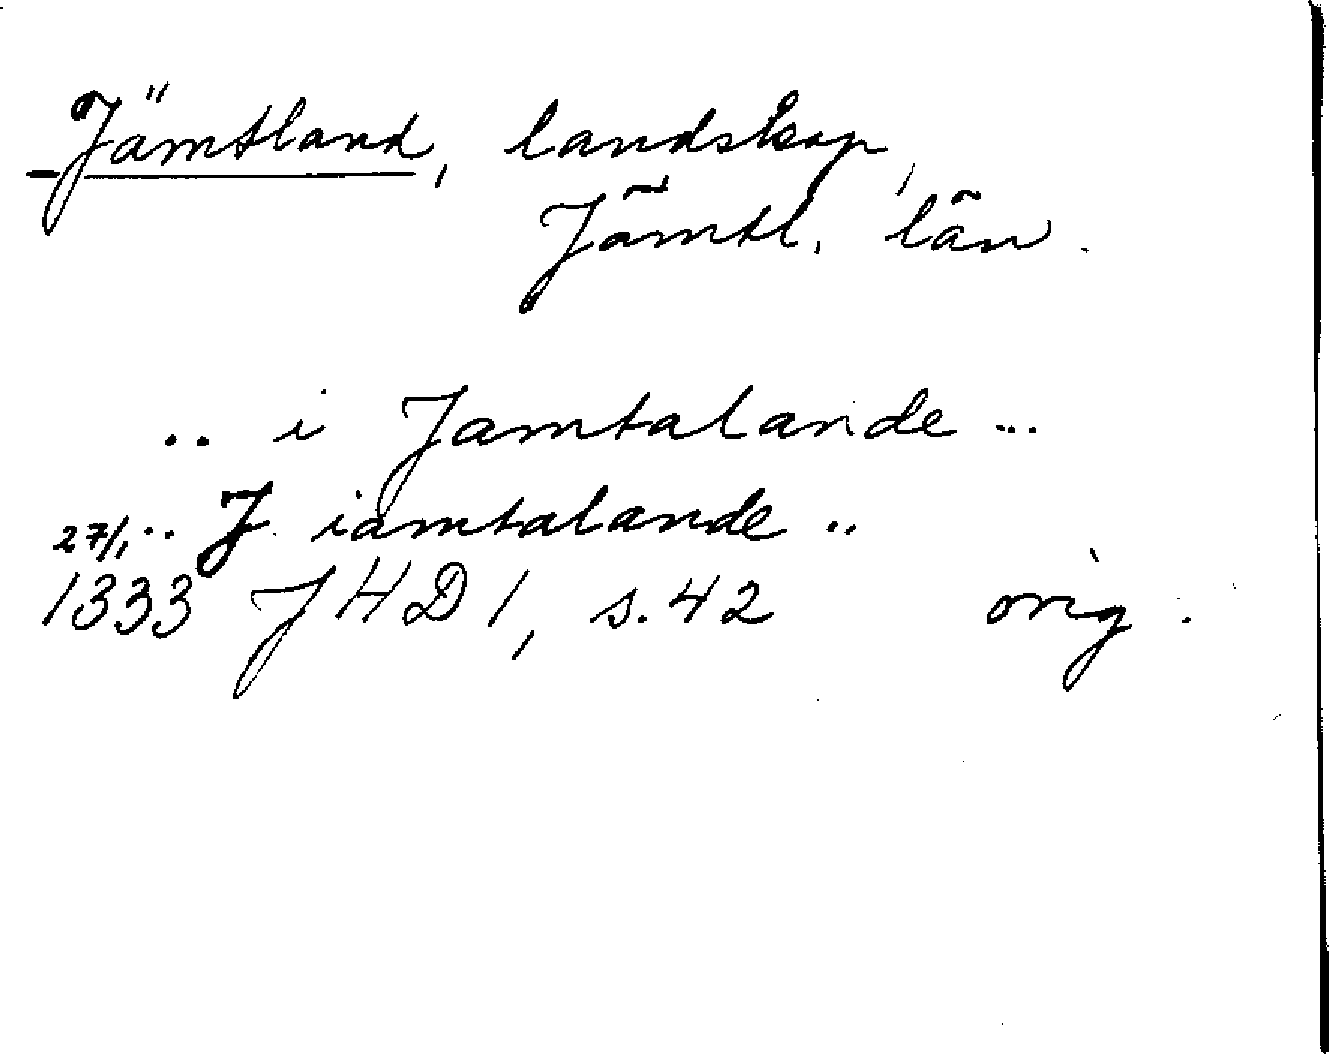 Jämtland, landskap,
Jämtl. län.
.. i Jamtalande ...
27/1 .. J iamtalande ..
1333 JHD 1, s. 42 orig.